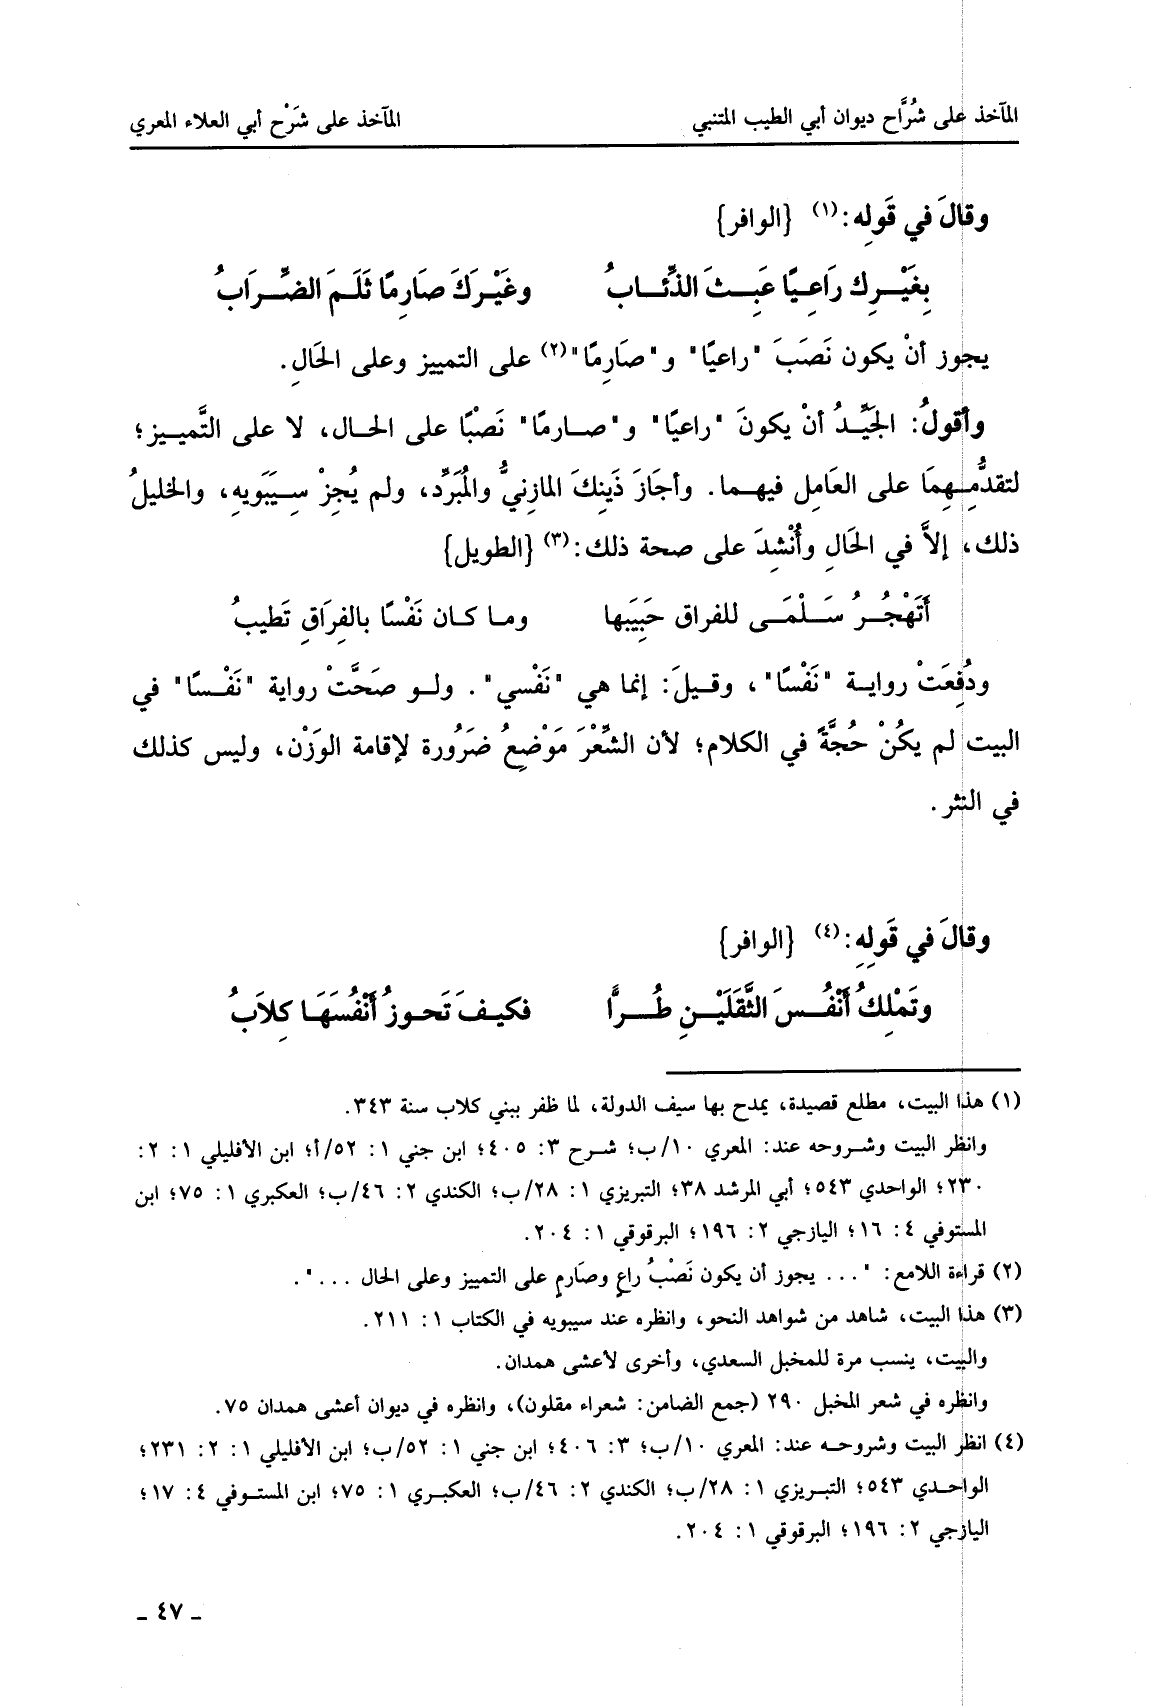 المآخذ على شُرَّاح ديوان أبي الطيب المتنبي المآخذ على شَرْح أبي العلاء المعري
وقالَ في قَولِه:(١) {الوافر}
بِغَيْـرِك رَاعِيًا عَبِـثَ الذِّئَـابُ وغَيْـرَكَ صَارِمًا ثَلَـمَ الضِّـرَابُ
يجوز أنْ يكون نَصَبَ "راعيًا" و"صَارِمًا"(٢) على التمييز وعلى الحَالِ.
وأقولُ: الجَيِّـدُ أنْ يكونَ "راعيًا" و"صـارمًا" نَصْبًا على الحـال، لا على التَّمييـز؛
لتقدُّمِـهِمَا على العَامِل فيهـما. وأجَازَ ذَينِكَ المازنيُّ والمُبَرِّد، ولم يُجِزْ سِـيبَويهِ، والخليلُ
ذلك، إلاَّ في الحَالِ وأُنْشِدَ على صحة ذلك:(٣) {الطويل}
أَتَهْجُـرُ سَـلْمَـى للفراق حَبِيَبها ومـا كـان نَفْسًا بالفِرَاقِ تَطيبُ
ودُفِعَتْ روايـة "نَفْسًا"، وقـيلَ: إنما هي "نَفْسي". ولـو صَحَّتْ رواية "نَفْـسًا" في
البيت لم يكُنْ حُجَّةً في الكلام؛ لأن الشِّعْرَ مَوْضِعُ ضَرُورة لإقامة الوَزْن، وليس كذلك
في النثر.
وقالَ في قَولِهِ:(٤) {الوافر}
وتَمْلِكُ أَنْفُـسَ الثَّقَلَيْـنِ طُـرًّا فكيـفَ تَحـوزُ أَنْفُسَهَـا كِلاَبُ
(١) هذا البيت، مطلع قصيدة، يمدح بها سيف الدولة، لما ظفر ببني كلاب سنة ٣٤٣.
وانظر البيت وشـروحه عند: المعري ١٠/ب؛ شـرح ٣: ٤٠٥؛ ابن جني ١: ٥٢/أ؛ ابن الأفليلي ١: ٢:
٢٣٠؛ الواحدي ٥٤٣؛ أبي المرشد ٣٨؛ التبريزي ١: ٢٨/ب؛ الكندي ٢: ٤٦/ب؛ العكبري ١: ٧٥؛ ابن
المستوفي ٤: ١٦؛ اليازجي ٢: ١٩٦؛ البرقوقي ١: ٢٠٤.
(٢) قراءة اللامع: "... يجوز أن يكون نَصْبُ راعٍ وصَارمٍ على التمييز وعلى الحال ...".
(٣) هذا البيت، شاهد من شواهد النحو، وانظره عند سيبويه في الكتاب ١: ٢١١.
والبيت، ينسب مرة للمخبل السعدي، وأخرى لأعشى همدان.
وانظره في شعر المخبل ٢٩٠ (جمع الضامن: شعراء مقلون)، وانظره في ديوان أعشى همدان ٧٥.
(٤) انظر البيت وشروحـه عند: المعري ١٠/ب؛ ٣: ٤٠٦؛ ابن جني ١: ٥٢/ب؛ ابن الأفليلي ١: ٢: ٢٣١؛
الواحـدي ٥٤٣؛ التبـريزي ١: ٢٨/ب؛ الكندي ٢: ٤٦/ب؛ العكبـري ١: ٧٥؛ ابن المستـوفي ٤: ١٧؛
اليازجي ٢: ١٩٦؛ البرقوقي ١: ٢٠٤.
ـ ٤٧ ـ